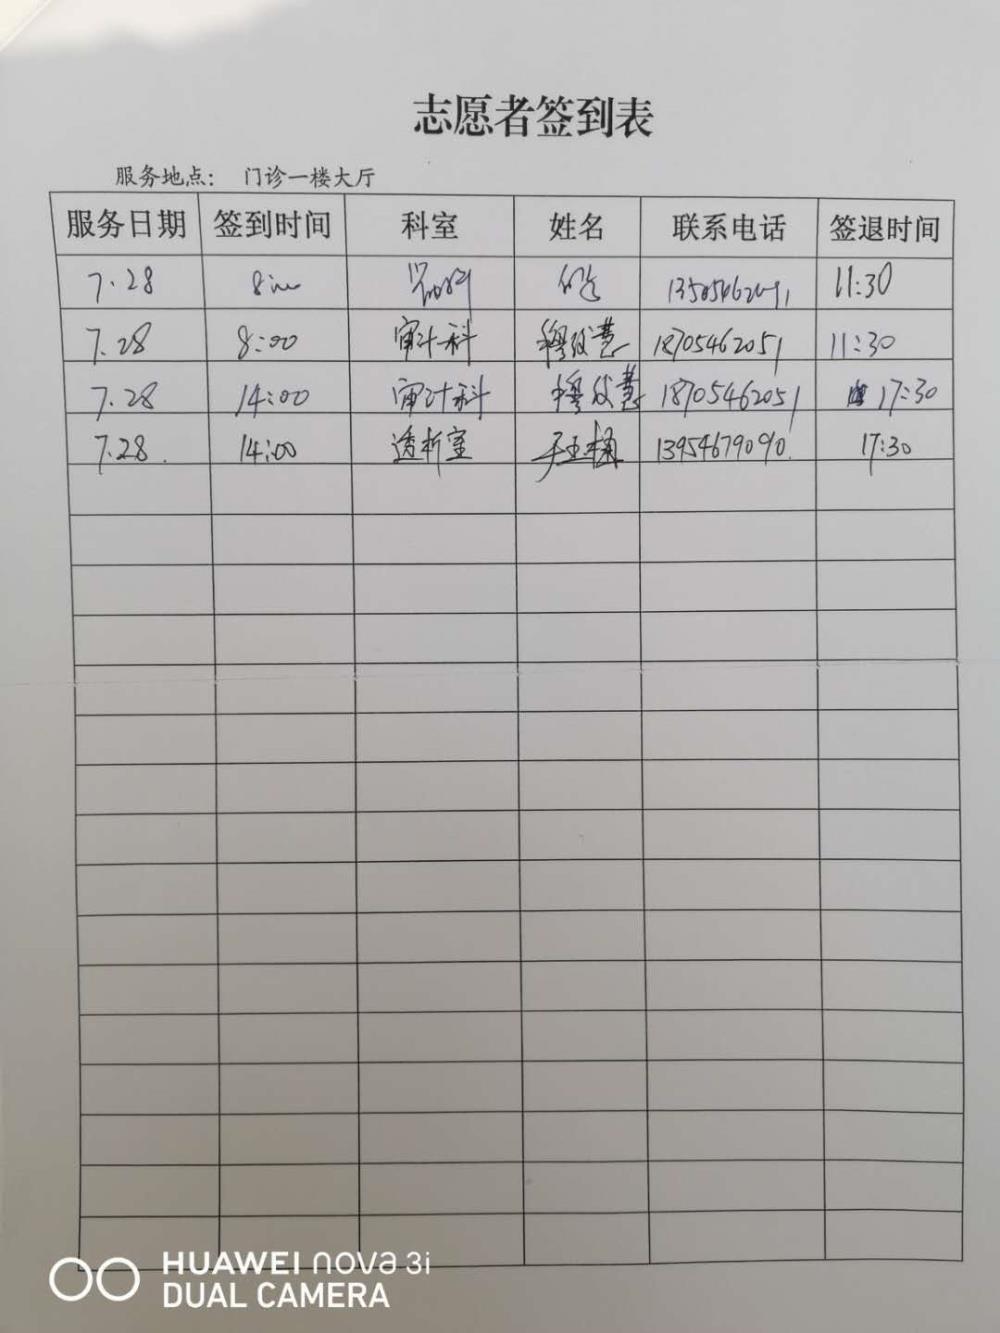 志愿者签到表
服务地点： 门诊一楼大厅
服务日期 签到时间 科室 姓名 联系电话 签退时间
7.28 11:30
7.28 8:00 审计科 穆俊慧 18705462051 11:30
7.28 14:00 审计科 穆俊慧 18705462051 17:30
7.28. 14:00 透析室 13954679090. 17:30
HUAWEI nova 3i
DUAL CAMERA